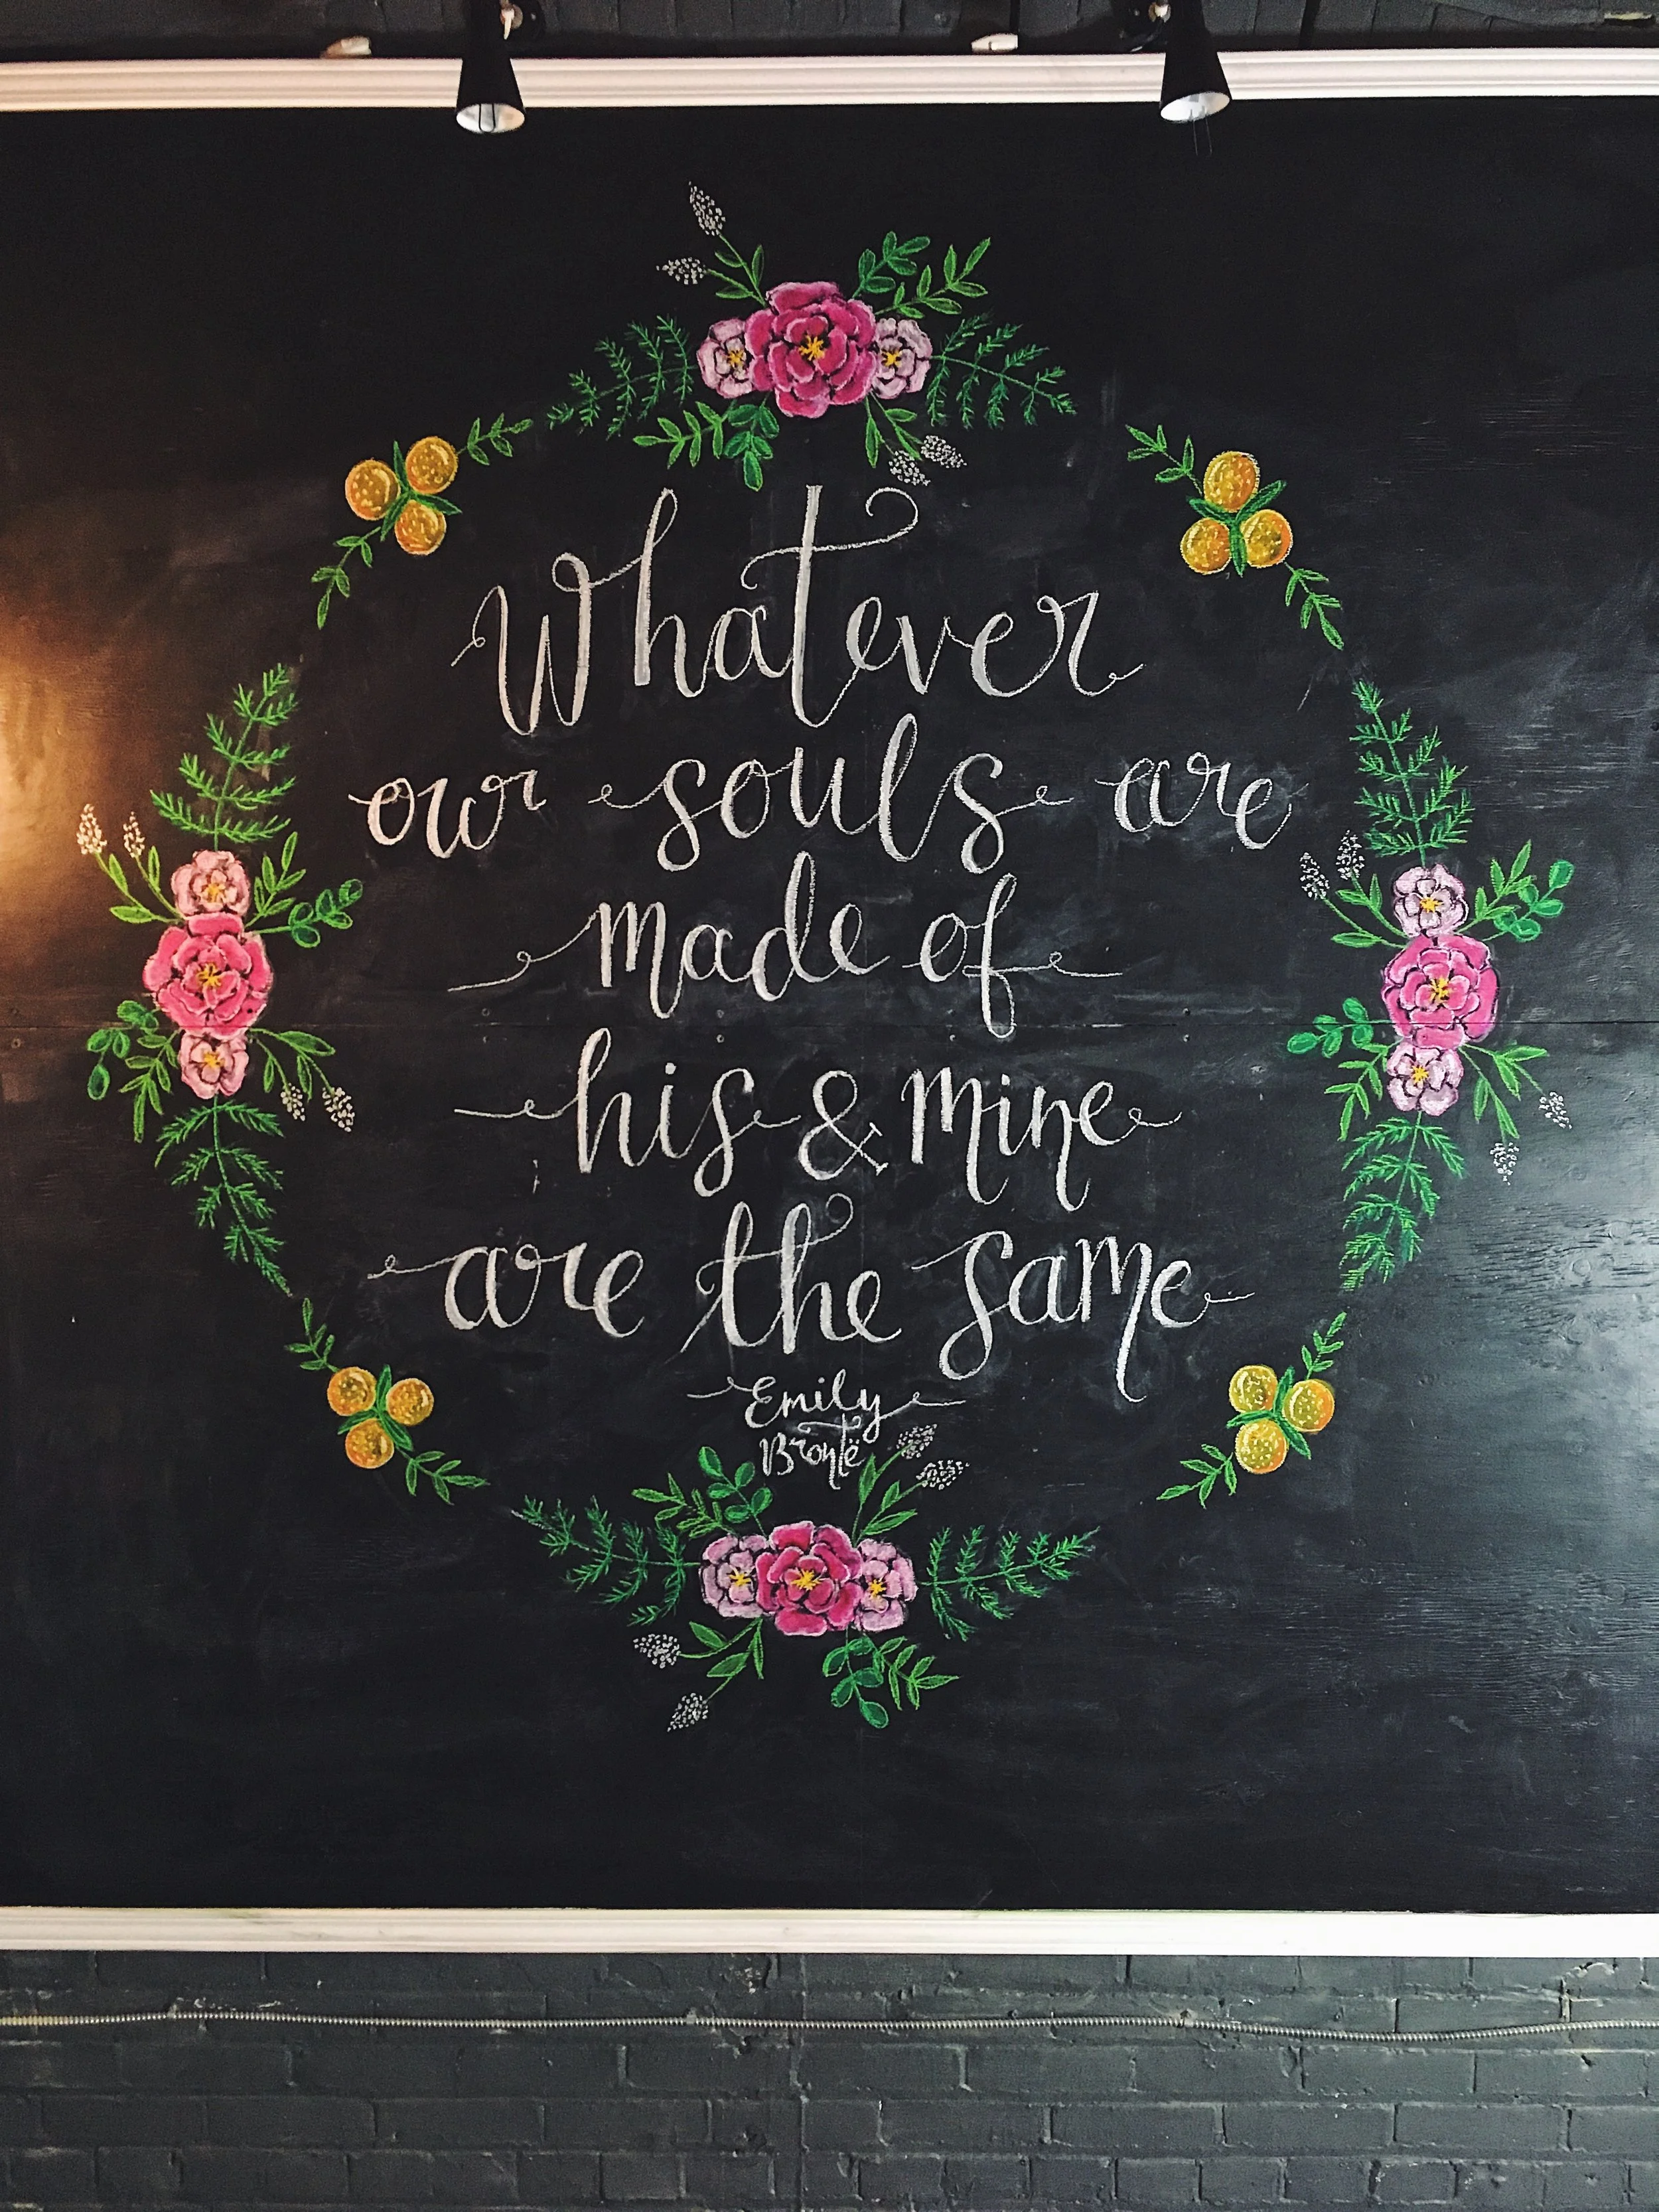 Whatever
our souls are
made of
his & mine
are the same
Emily
Brontë